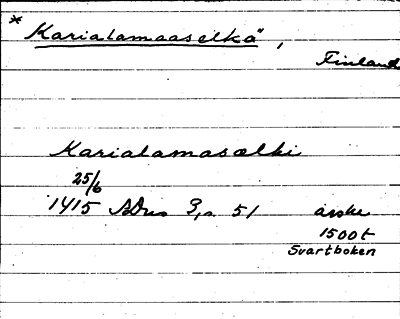 * Karialamaaselkä,
Finland
Karialamasælki
25/6
1415 s. 51 avskr
1500t
Svartboken